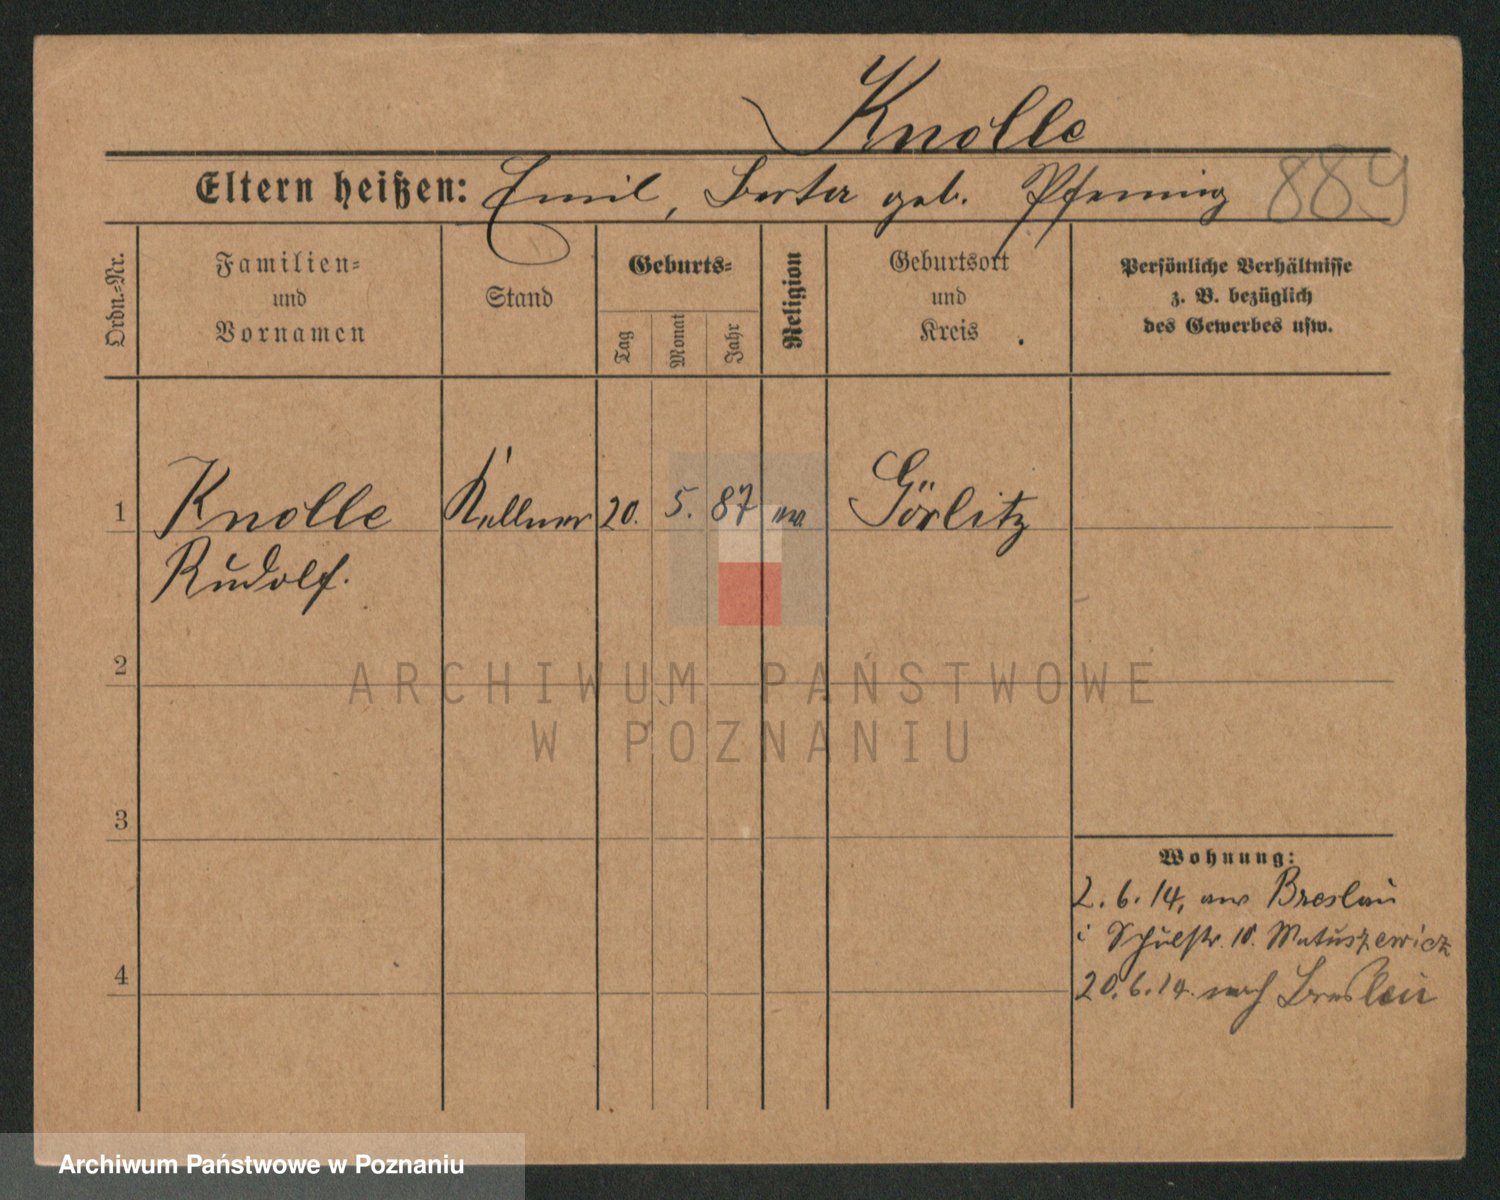 Knolle
Eltern heißen: Emil, Berta geb. Pfennig 889
Ordn.-Nr.
Familien-
und
Vornamen
Stand
Geburts-
Tag
Monat
Jahr
Religion
Geburtsort
und
Kreis
Persönliche Verhältnisse
z. B. bezüglich
des Gewerbes usw.
1 Knolle Kellner 20. 5. 87 ev Görlitz
Rudolf.
2
ARCHIWUM PAŃSTWOWE
W POZNANIU
3
Wohnung:
2. 6. 14, aus Breslau
i Schulstr. 10. Matuszewicz
4
20. 6. 14. nach Breslau
Archiwum Państwowe w Poznaniu